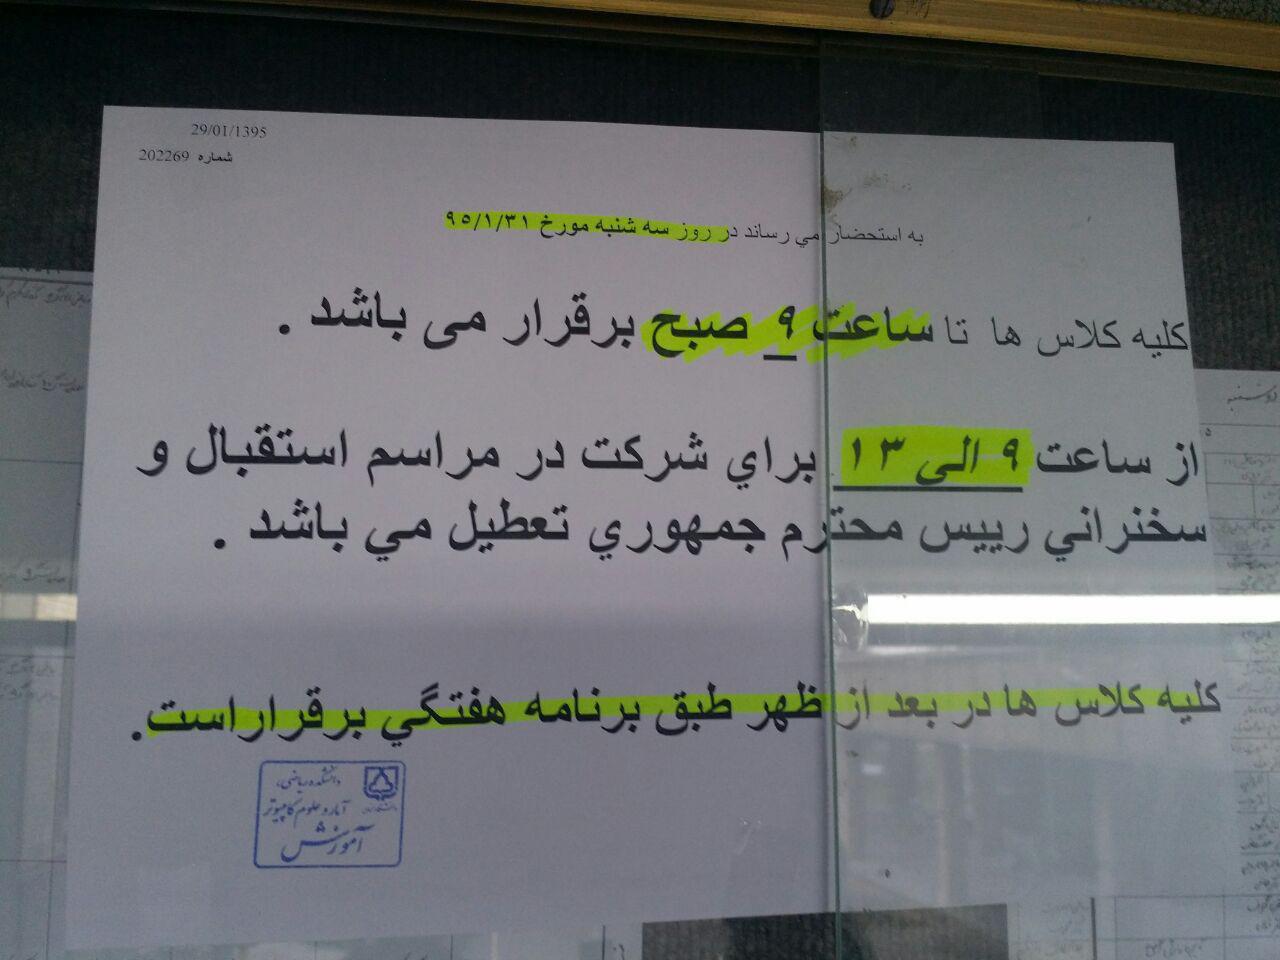 29/01/1395
شماره 202269
به استحضار مي رساند در روز سه شنبه مورخ ٩٥/١/٣١
كليه كلاس ها تا ساعت ٩ صبح برقرار می باشد .
از ساعت ٩ الی ١٣ براي شركت در مراسم استقبال و
سخنراني رييس محترم جمهوري تعطيل مي باشد .
كليه كلاس ها در بعد از ظهر طبق برنامه هفتگي برقراراست.
دانشكده رياضی،
آمار و علوم كامپيوتر
آموزش